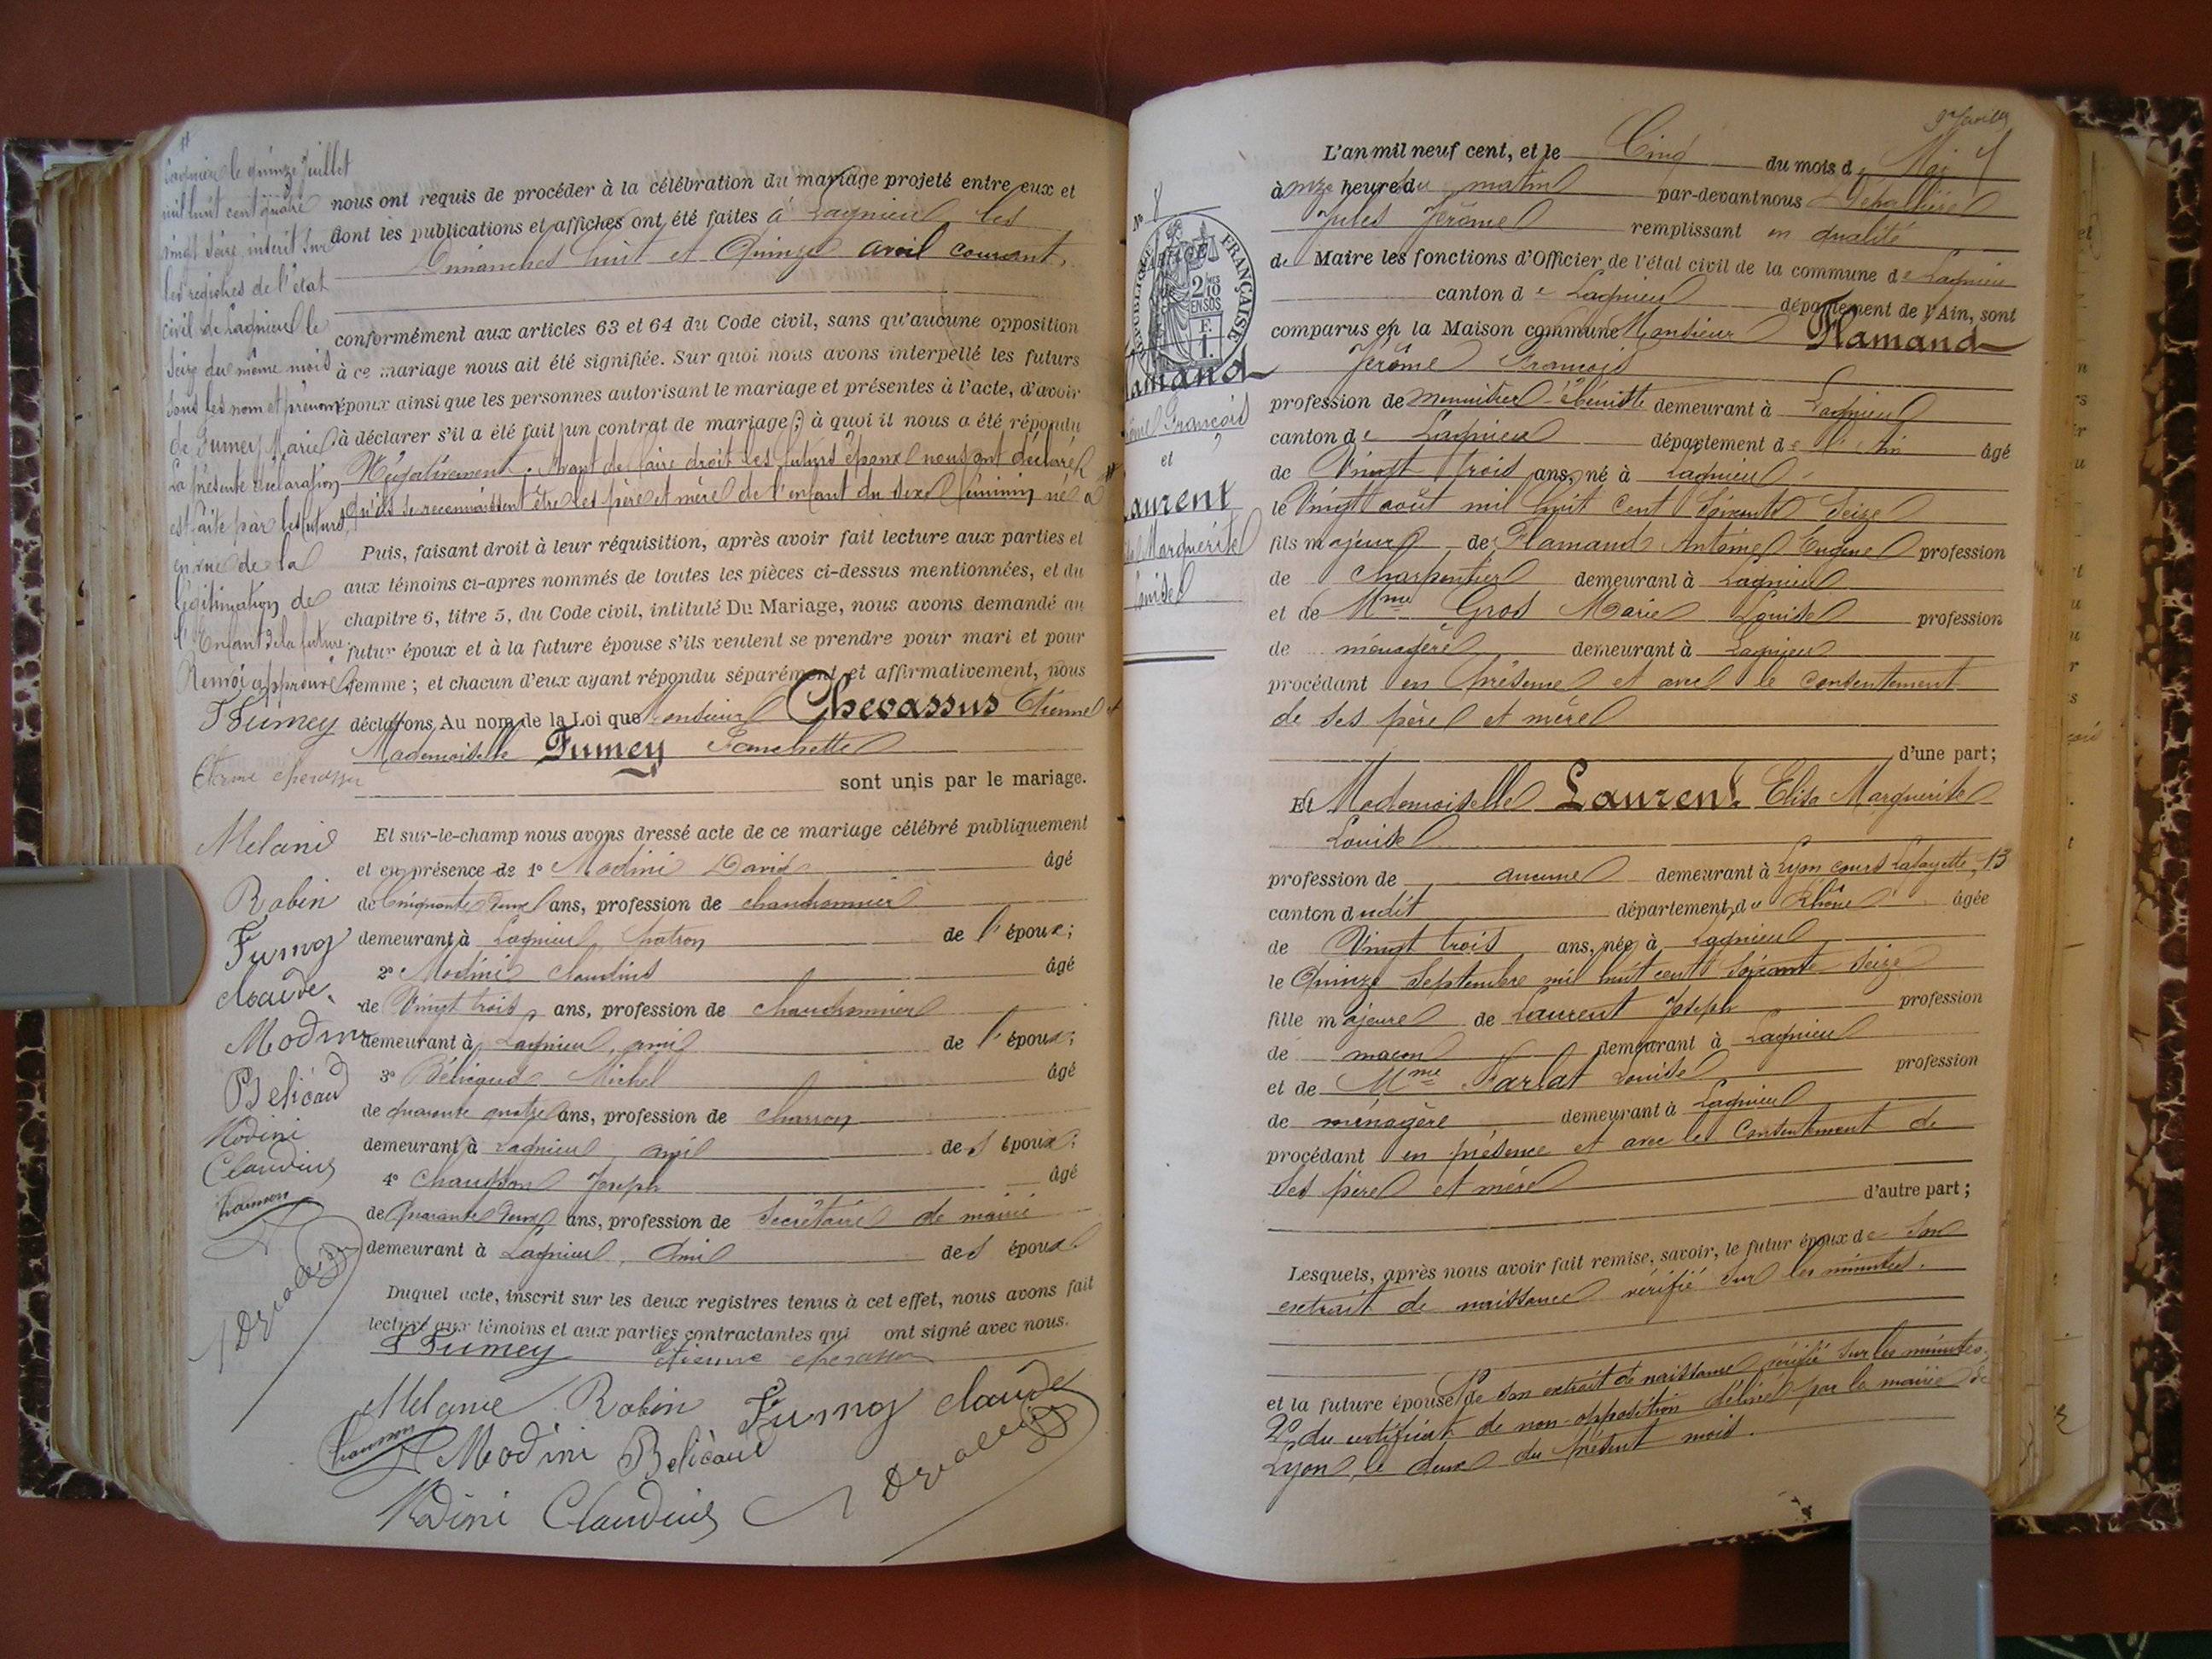 Lagnieu le quinze Juillet
mil huit cent quatre
vingt seize, inscrit sur
les registres de l'état
civil de Lagnieu le
seize du même mois
sous les nom et prénom
de Fumey Marie
La présente déclaration
est faite par les futurs
en vue de la
légitimation de
l'Enfant de la future.
Renvoi approuvé
F Fumey
Etienne chevassu
Melanie
Robin
Fumey
claude
Modini
Belicaud
Modini
Claudius
Chausson
nous ont requis de procéder à la célébration du mariage projeté entre eux et
dont les publications et affiches ont été faites à Lagnieu les
Dimanches huit et Quinze avril courant,
conformément aux articles 63 et 64 du Code civil, sans qu'aucune opposition
à ce mariage nous ait été signifiée. Sur quoi nous avons interpellé les futurs
époux ainsi que les personnes autorisant le mariage et présentes à l'acte, d'avoir
à déclarer s'il a été fait un contrat de mariage; à quoi il nous a été répondu
Négativement. Avant de faire droit les futurs époux nous ont déclaré
qu'ils se reconnaissent être les père et mère de l'enfant du sexe féminin né à
Puis, faisant droit à leur réquisition, après avoir fait lecture aux parties et
aux témoins ci-apres nommés de toutes les pièces ci-dessus mentionnées, et du
chapitre 6, titre 5, du Code civil, intitulé Du Mariage, nous avons demandé au
futur époux et à la future épouse s'ils veulent se prendre pour mari et pour
femme ; et chacun d'eux ayant répondu séparément et affirmativement, nous
déclarons Au nom de la Loi que Monsieur Chevassus Etienne et
Mademoiselle Fumey Fanchette
sont unis par le mariage.
Et sur-le-champ nous avons dressé acte de ce mariage célébré publiquement
et en présence de 1° Modini David âgé
de Cinquante deux ans, profession de chauchonnier
demeurant à Lagnieu, patron de l'époux;
2° Modini Claudius âgé
de Vingt trois ans, profession de chauchonnier
demeurant à Lagnieu, ami de l'époux;
3° Bélicaud Michel âgé
de quarante quatre ans, profession de charron
demeurant à Lagnieu, ami des époux;
4° Chausson Joseph âgé
de Quarante deux ans, profession de Secrétaire de mairie
demeurant à Lagnieu, Ami des époux.
Duquel acte, inscrit sur les deux registres tenus à cet effet, nous avons fait
lecture aux témoins et aux parties contractantes qui ont signé avec nous.
F Fumey Etienne chevassu
Melanie Robin Fumey claude
Chausson Modini Belicaud
Modini Claudius
N° 8
RÉPUBLIQUE FRANÇAISE
2/10
EN SUS
Flamand
Jérôme François
et
Laurent
Elisa Marguerite
Louise
L'an mil neuf cent, et le Cinq du mois de Mai
à onze heure du matin par-devant nous Dehallière
Jules Jérôme remplissant en qualité
de Maire les fonctions d'Officier de l'état civil de la commune de Lagnieu
canton de Lagnieu département de l'Ain, sont
comparus en la Maison commune Monsieur Flamand
Jérôme François
profession de menuisier ébéniste demeurant à Lagnieu
canton de Lagnieu département de l'Ain âgé
de Vingt trois ans, né à Lagnieu
le Vingt août mil huit cent soixante seize
fils majeur de Flamand Antoine Eugène profession
de charpentier demeurant à Lagnieu
et de Mme Gros Marie Louise profession
de ménagère demeurant à Lagnieu
procédant en présence et avec le consentement
de ses père et mère
d'une part;
Et Mademoiselle Laurent Elisa Marguerite
Louise
profession de aucune demeurant à Lyon cours Lafayette, 13
canton dudit département du Rhône âgée
de Vingt trois ans, née à Lagnieu
le Quinze Septembre mil huit cent soixante seize
fille majeure de Laurent Joseph profession
de maçon demeurant à Lagnieu
et de Mme Farlat Louise profession
de ménagère demeurant à Lagnieu
procédant en présence et avec le consentement de
ses père et mère
d'autre part;
Lesquels, après nous avoir fait remise, savoir, le futur époux de son
extrait de naissance vérifié sur les minutes.
et la future épouse 1° de son extrait de naissance vérifié sur les minutes.
2° du certificat de non-opposition délivré par la mairie de
Lyon, le deux du présent mois.